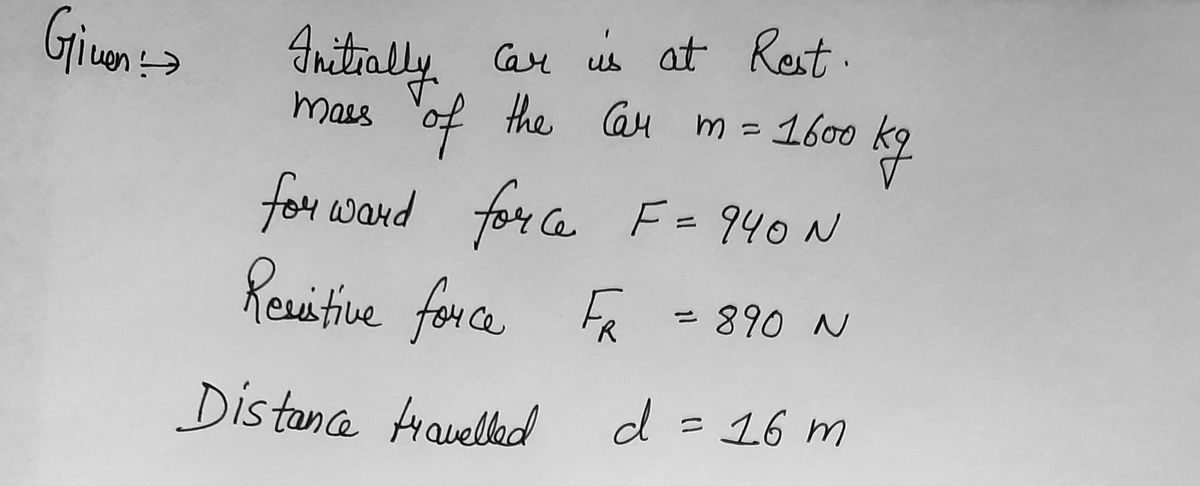 Given :→ Initially car is at Rest.
mass of the Car m = 1600 kg
forward force F = 940 N
Resistive force FR = 890 N
Distance travelled d = 16 m